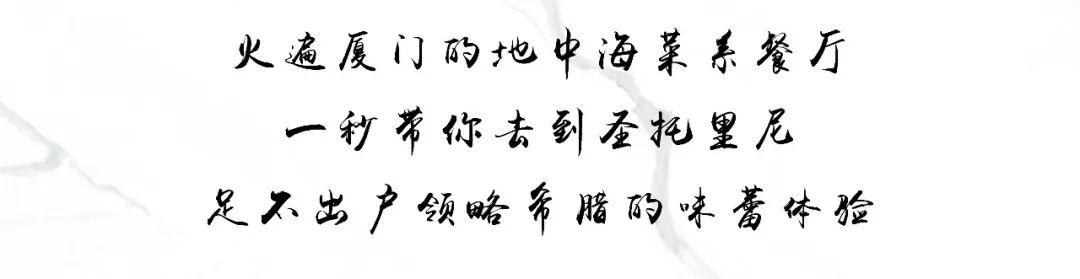 火遍厦门的地中海菜系餐厅
一秒带你去到圣托里尼
足不出户领略希腊的味蕾体验